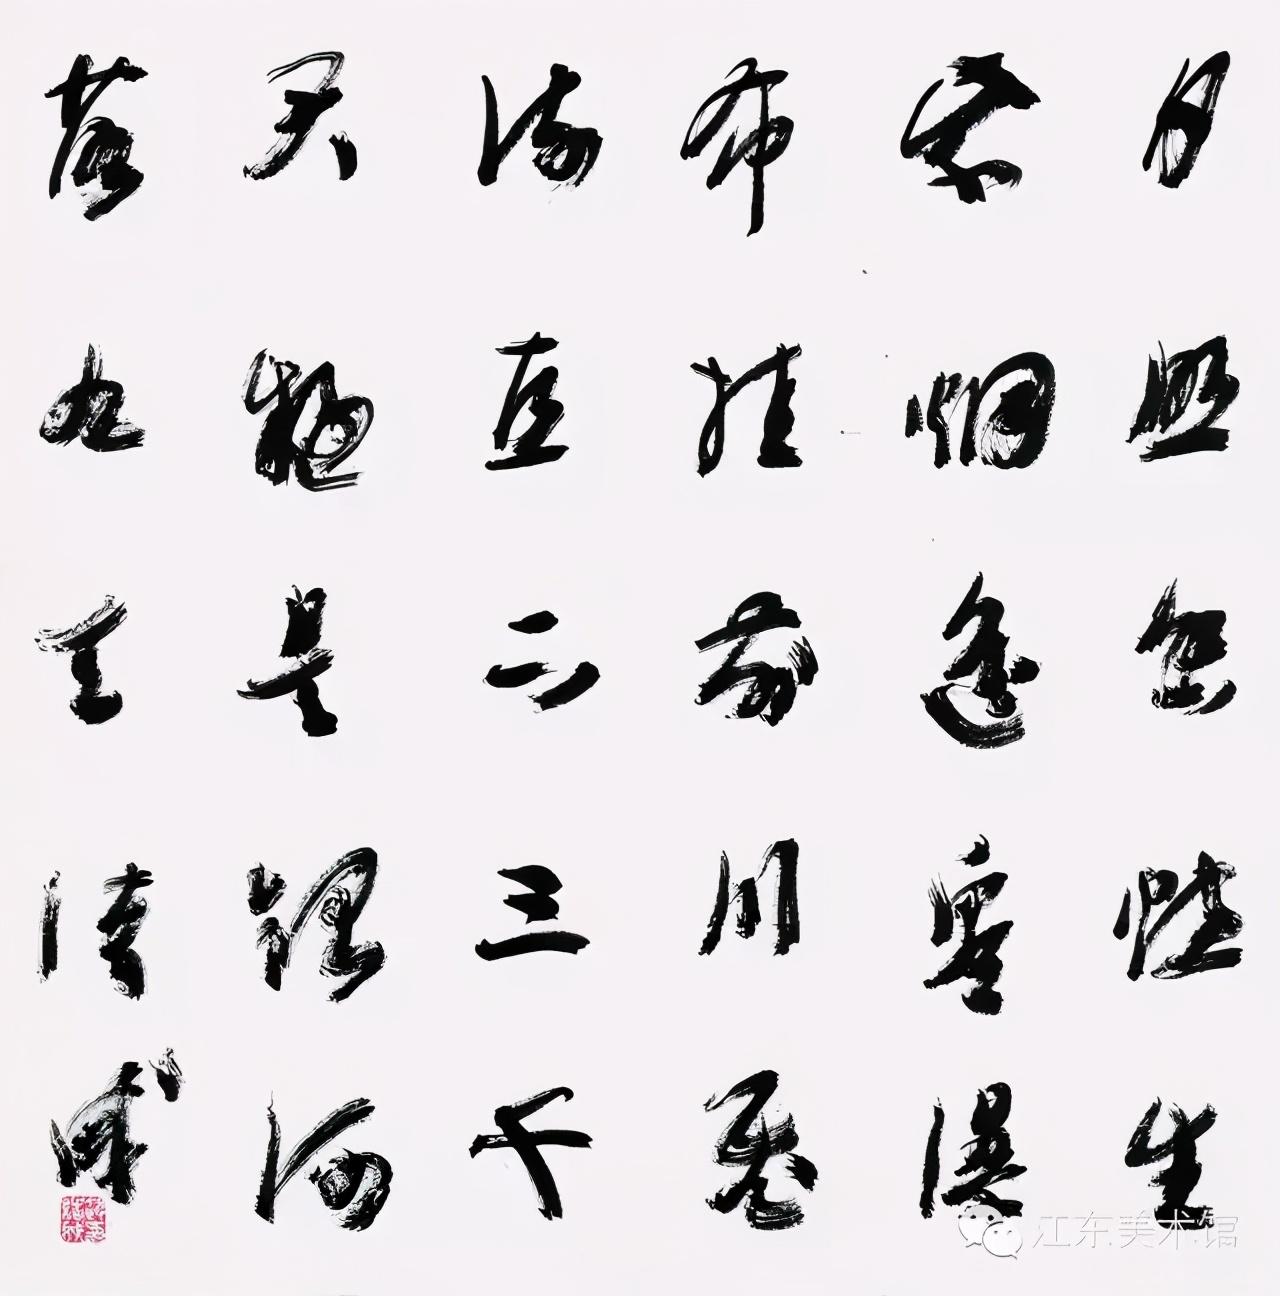 日照香炉生
紫烟遥看瀑
布挂前川飛
流直下三千
尺疑是銀河
落九天
江东美术馆